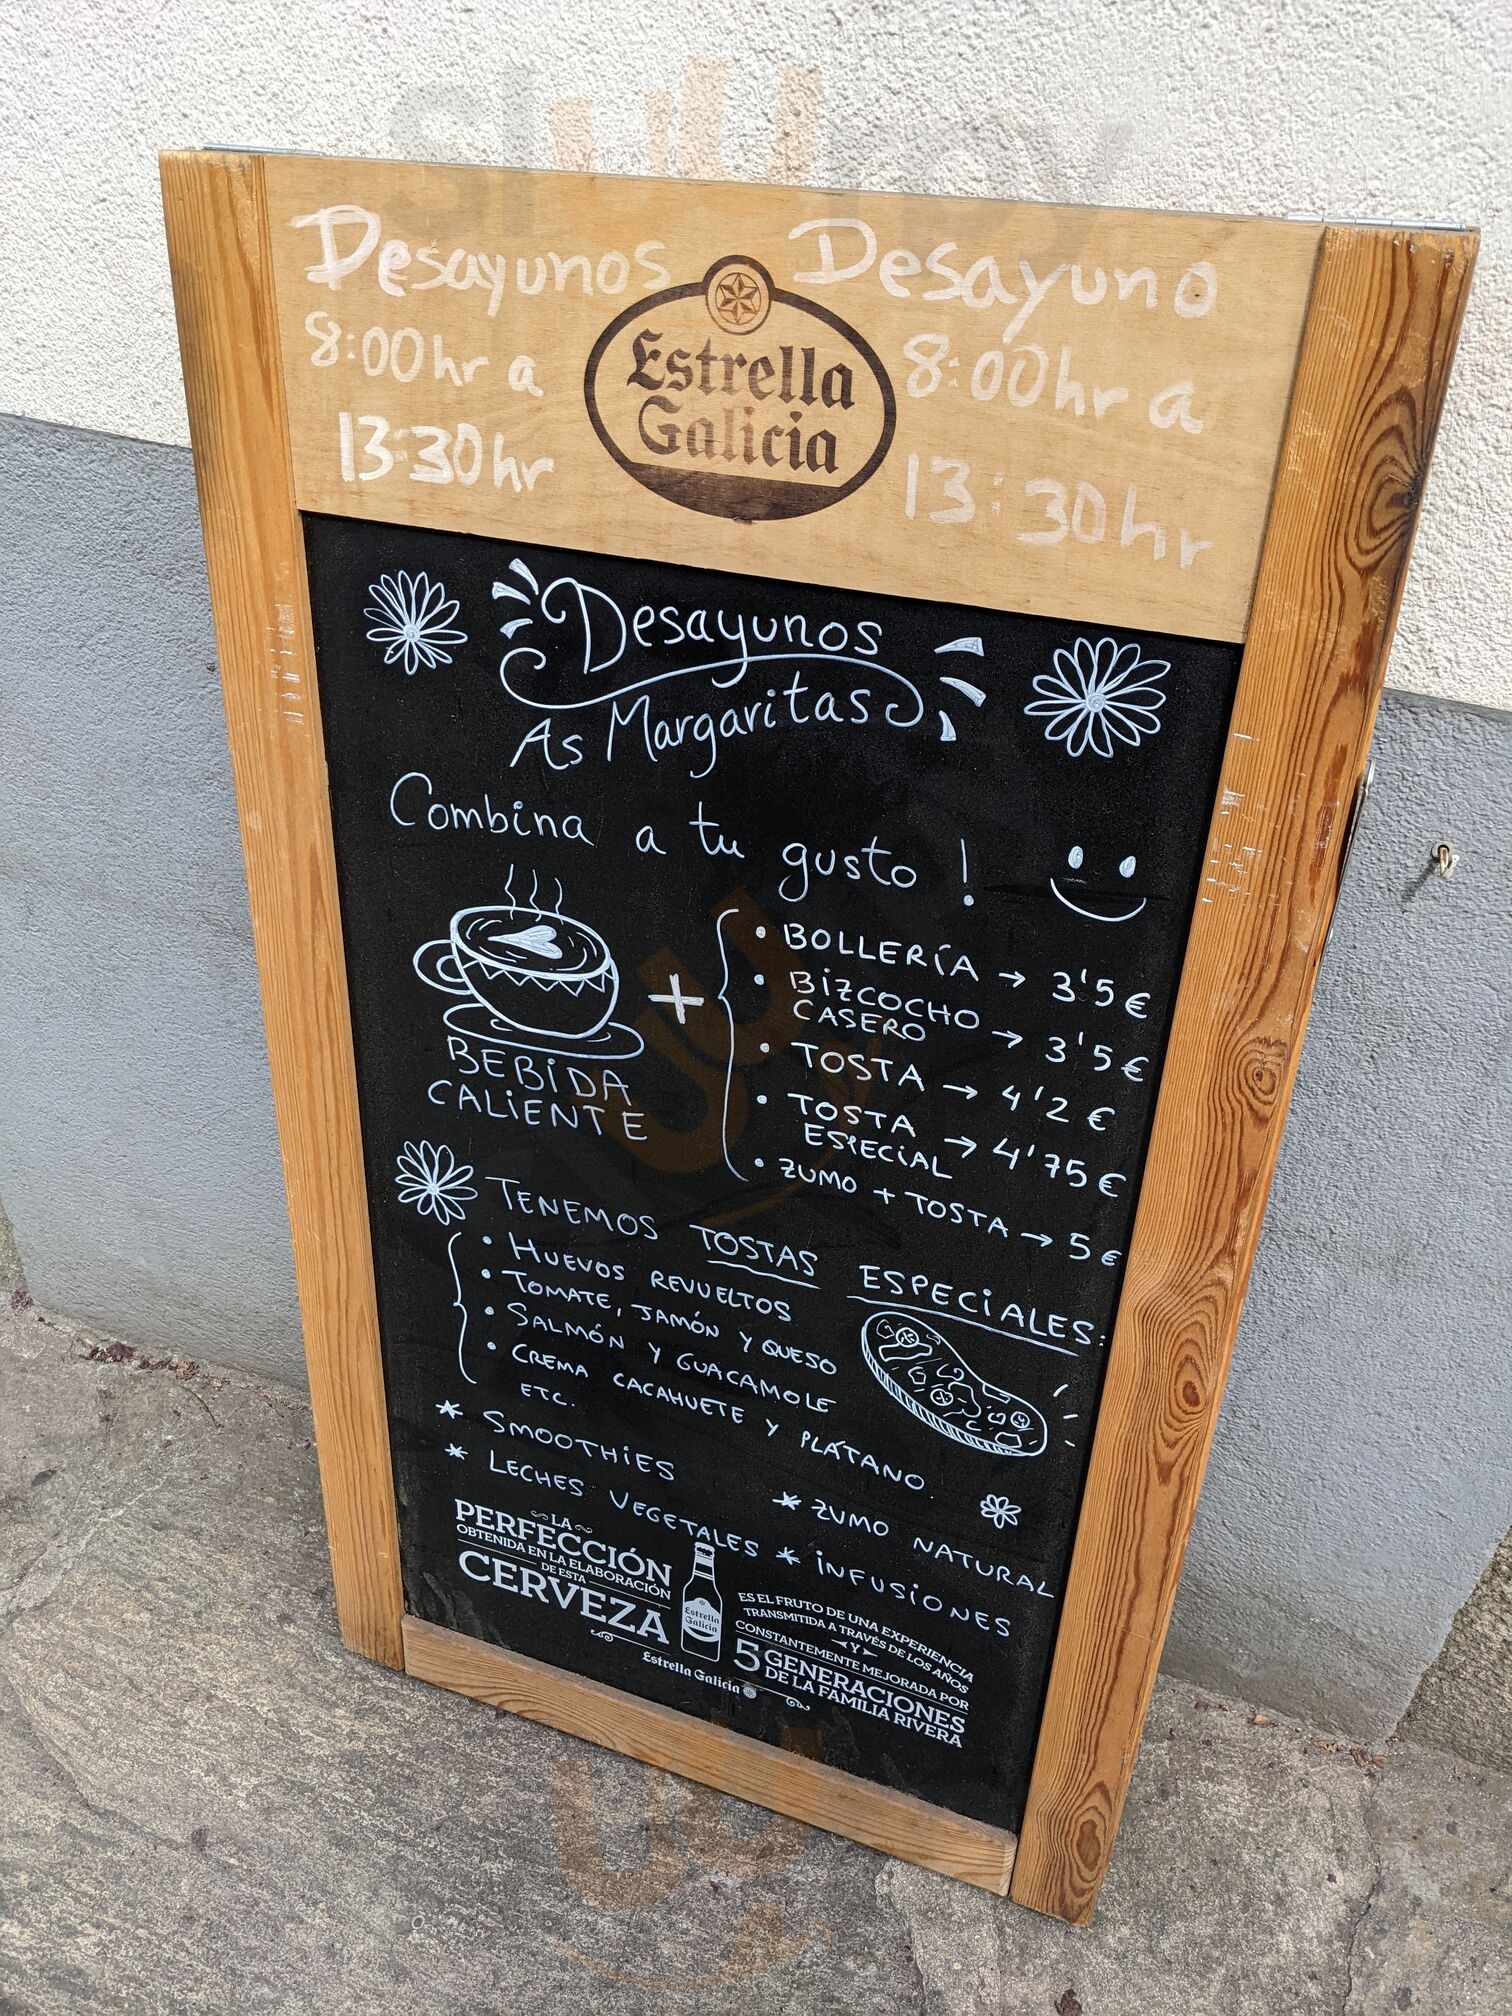 Desayunos
8:00hr a
13:30hr
Estrella
Galicia
Desayuno
8:00hr a
13:30hr
Desayunos
As Margaritas
Combina a tu gusto !
BEBIDA
CALIENTE
+
• BOLLERÍA → 3'5 €
• BIZCOCHO
CASERO → 3'5 €
• TOSTA → 4'2 €
• TOSTA
ESPECIAL → 4'75 €
• ZUMO + TOSTA → 5 €
TENEMOS TOSTAS ESPECIALES:
• HUEVOS REVUELTOS
• TOMATE, JAMÓN Y QUESO
• SALMÓN Y GUACAMOLE
• CREMA CACAHUETE Y PLÁTANO
ETC.
* SMOOTHIES
* LECHES VEGETALES
* ZUMO NATURAL
* INFUSIONES
LA
PERFECCIÓN
OBTENIDA EN LA ELABORACIÓN
DE ESTA
CERVEZA
Estrella
Galicia
Estrella Galicia
ES EL FRUTO DE UNA EXPERIENCIA
TRANSMITIDA A TRAVÉS DE LOS AÑOS
Y
CONSTANTEMENTE MEJORADA POR
5 GENERACIONES
DE LA FAMILIA RIVERA